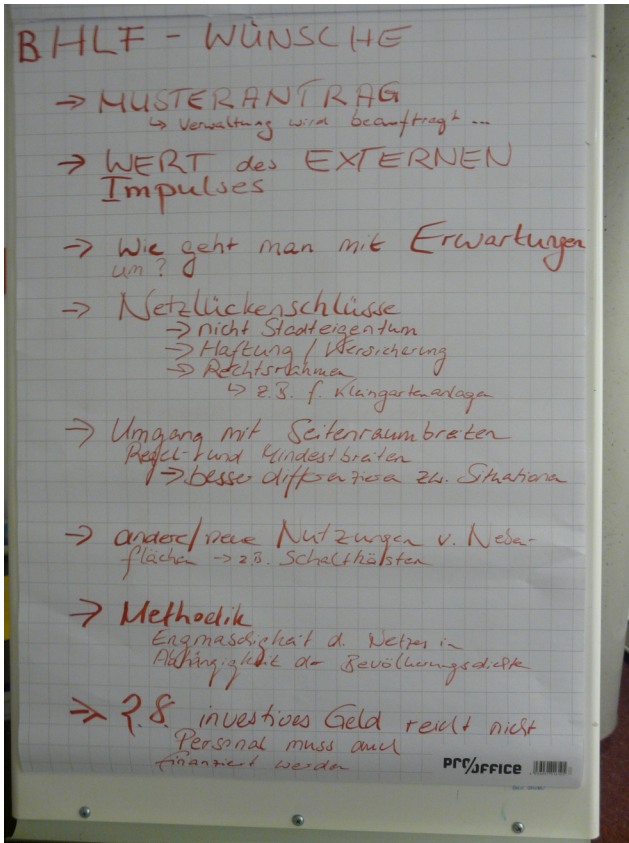 BHLF - WÜNSCHE
→ MUSTERANTRAG
↳ Verwaltung wird beauftragt ...
→ WERT des EXTERNEN
Impulses
→ Wie geht man mit Erwartungen
um?
→ Netzlückenschlüsse
→ nicht Stadteigentum
→ Haftung / Versicherung
→ Rechtsrahmen
↳ z.B. f. Kleingartenanlagen
→ Umgang mit Seitenraumbreiten
Regel- und Mindestbreiten
→ besser differenzieren zw. Situationen
→ andere/neue Nutzungen v. Neben-
flächen → z.B. Schaltkästen
→ Methodik
Engmaschigkeit d. Netzes in
Abhängigkeit der Bevölkerungsdichte
→ P.S. investives Geld reicht nicht
Personal muss auch
finanziert werden
PRO/OFFICE